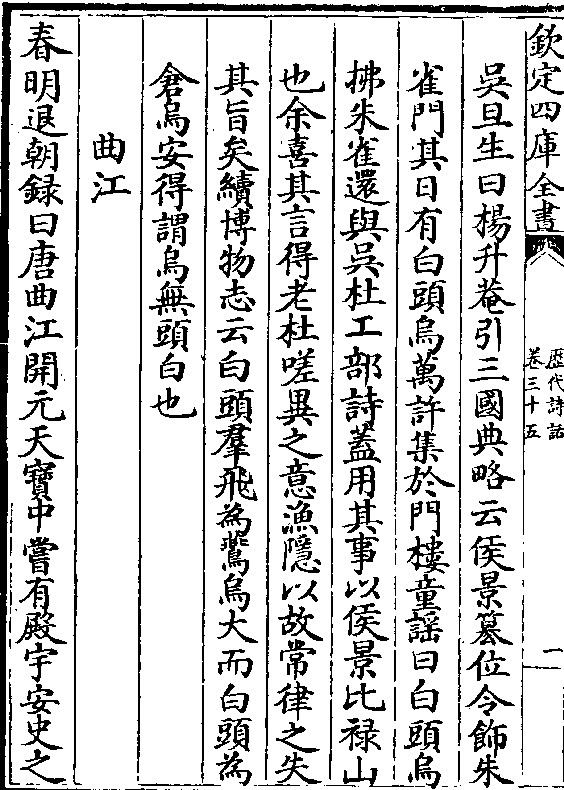 欽定四庫全書
歷代詩話
卷三十五
一
吳旦生曰楊升菴引三國典略云侯景簒位令飾朱
雀門其日有白頭烏萬許集於門樓童謡曰白頭烏
拂朱雀還與吳杜工部詩蓋用其事以侯景比祿山
也余喜其言得老杜嗟異之意漁隠以故常律之失
其旨矣續博物志云白頭羣飛為鷔烏大而白頭為
倉烏安得謂烏無頭白也
曲江
春明退朝録曰唐曲江開元天寶中嘗有殿宇安史之